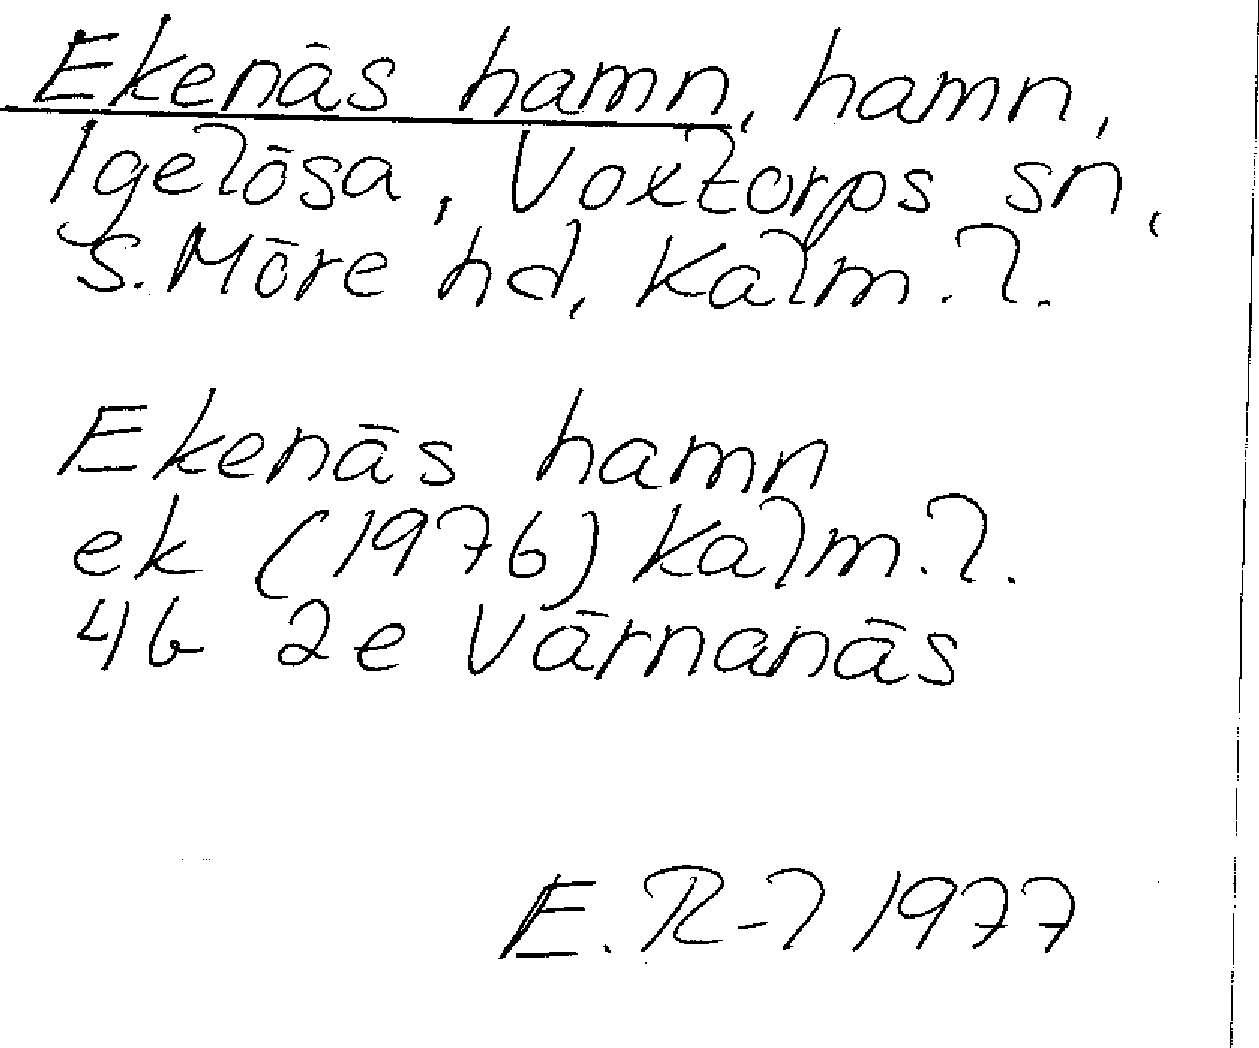 Ekenäs hamn, hamn,
Igelösa, Voxtorps sn,
S. Möre hd, Kalm. l.
Ekenäs hamn
ek (1976) Kalm. l.
4G 2e Värnanäs
E. R-l 1977